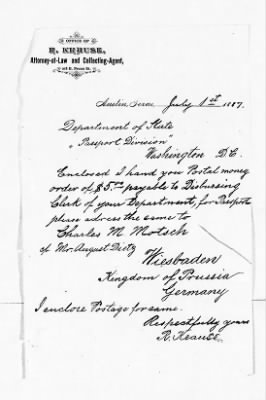 OFFICE OF
R. KRAUSE,
Attorney-at-Law and Collecting-Agent,
Austin, Texas July 1st 1887.
Department of State
"Passport Division"
Washington D.C.
Enclosed I hand you Postal money
order of $5.00 payable to Disbursing
Clerk of your Department, for Passport
please address the same to
Charles M. Motsch
c/o Mr. August Dietz
Wiesbaden
Kingdom of Prussia
Germany
I enclose Postage for same.
Respectfully yours
R. Krause